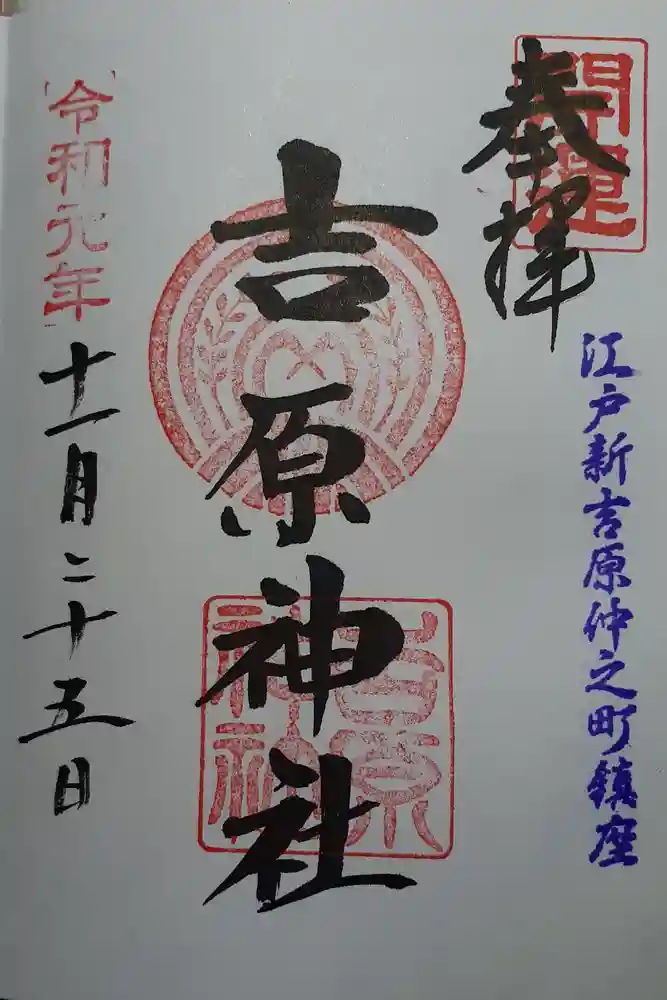 開運
奉拝
江戸新吉原仲之町鎮座
吉原神社
吉原
神社
令和元年
十一月二十五日